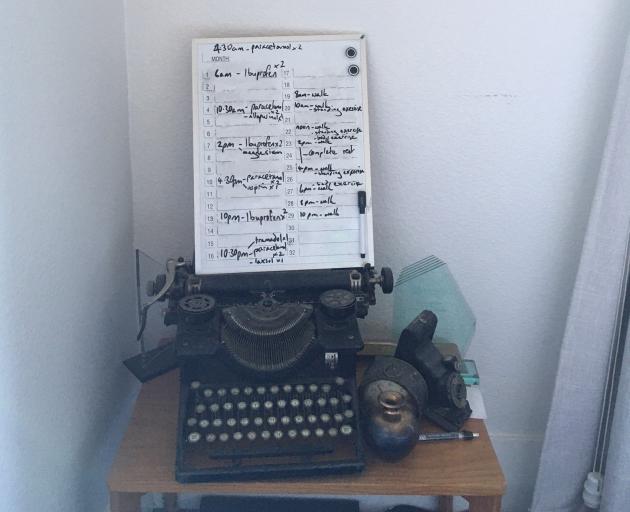 4:30am - paracetamol x2
MONTH
1 6am - Ibuprofen x2
2
3
4 10:30am - paracetamol x2
5
6
7 2pm - Ibuprofen x2
8 magnesium
9
10 4:30pm - paracetamol x2
11 aspirin x1
12
13 10pm - Ibuprofen x2
14
15 tramadol
16 10:30pm - paracetamol x2
17
18
19 8am - walk
20 10am - walk
- standing exercise
21
22 noon - walk
- standing exercise
23 2pm - walk
24 - complete rest
25 4pm - walk
26 - standing exercise
27 6pm - walk
28 8pm - walk
29 10pm - walk
30
31
32